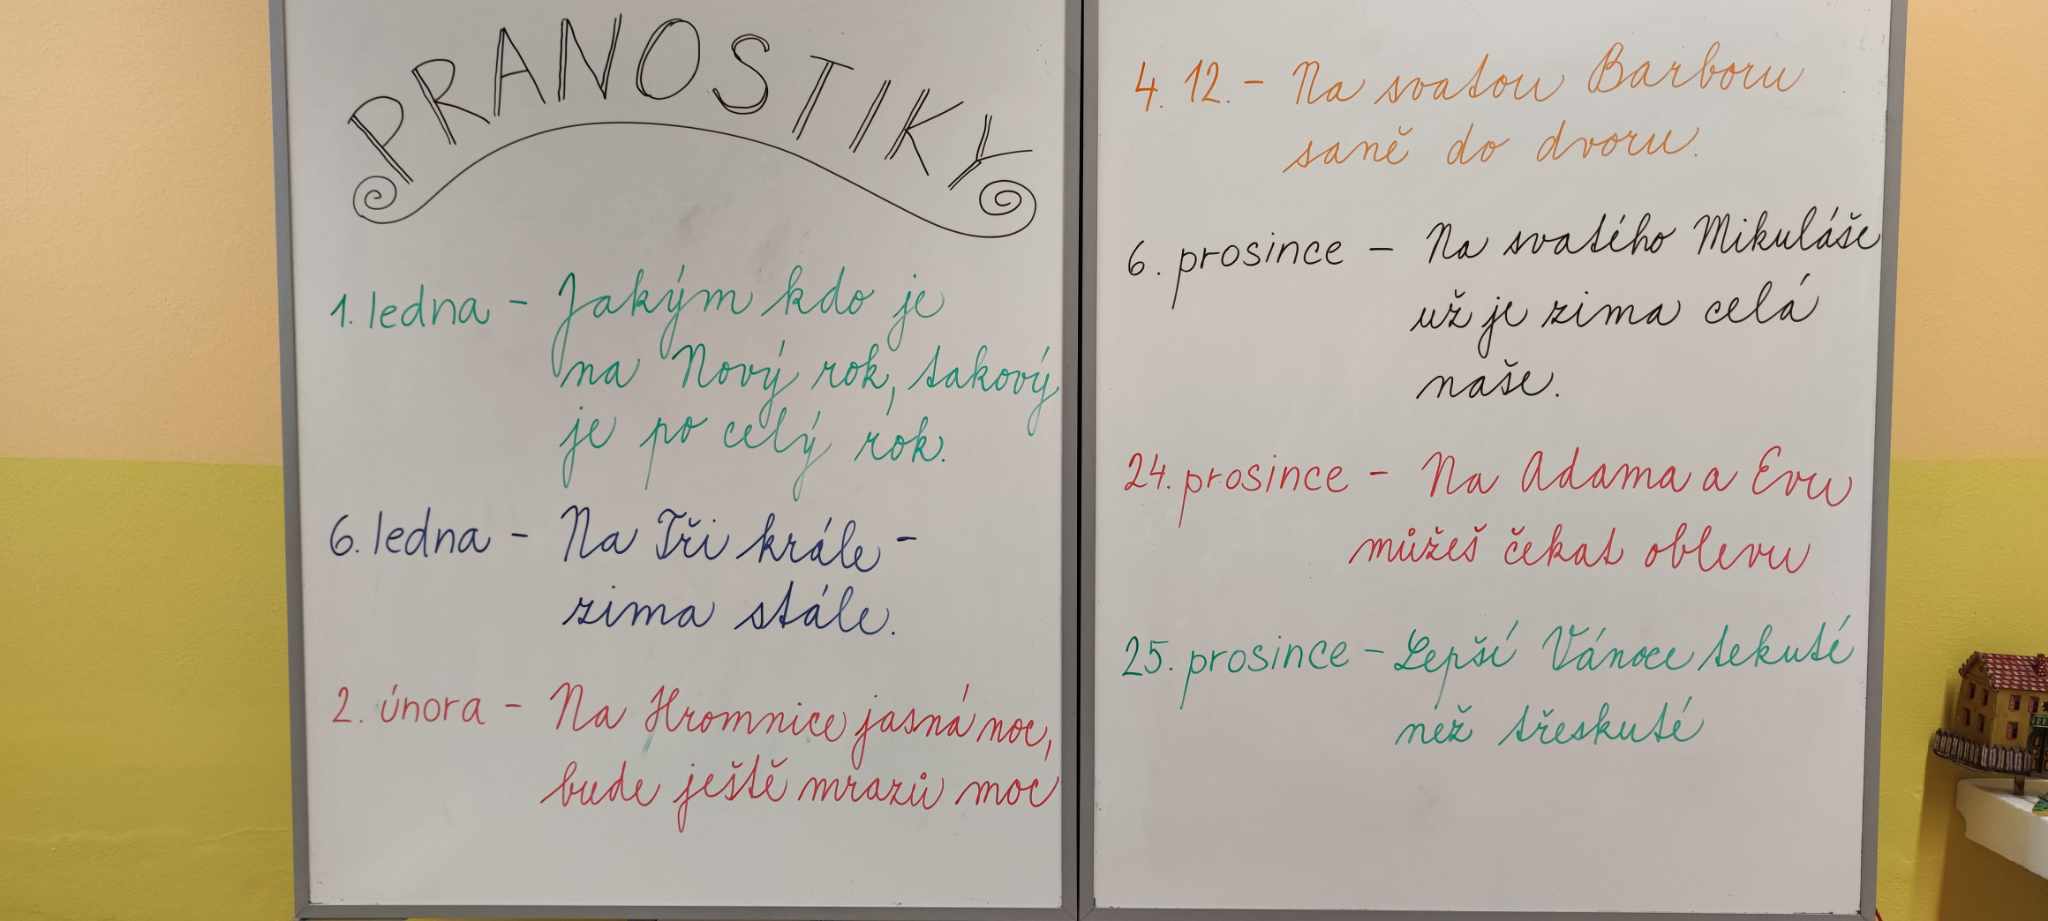 PRANOSTIKY
1. ledna - Jakým kdo je
na Nový rok, takový
je po celý rok.
6. ledna - Na Tři krále -
zima stále.
2. února - Na Hromnice jasná noc,
bude ještě mrazů moc
4. 12. - Na svatou Barboru
saně do dvoru.
6. prosince - Na svatého Mikuláše
už je zima celá
naše.
24. prosince - Na Adama a Evu
můžeš čekat oblevu
25. prosince - Lepší Vánoce tekuté
než třeskuté